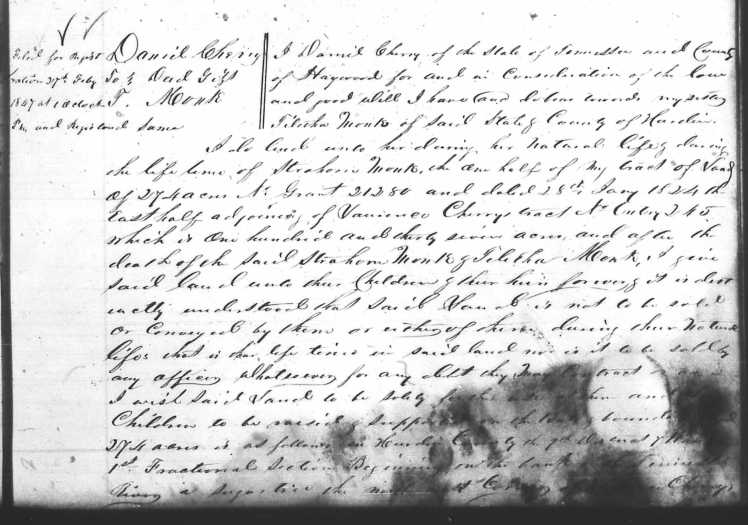 Filed for Regist
ration 27th Feby
1847 at 1 oclock
P.M. and Registered Same
Daniel Cherry
To } Deed Gift
T. Monk
I Daniel Cherry of the State of Tennessee and County
of Haywood for and in Consideration of the love
and good will I have and do bear towards my sister
Tilitha Monk of Said State & County of Hardin
I do lend unto her during her Natural life & during
the life time of Strahorn Monk, the one half of my tract of Land
of 274 acres No Grant 21280 and dated 28th Jany 1824 the
East half adjoining of Cherrys tract No Entry 245
which is One hundred and thirty seven acres, and after the
death of the said Strahorn Monk & Tilitha Monk, I give
said land unto their Children & their heirs forever, it is dist
inctly understood that said Land is not to be sold
or Conveyed by them or either of them during their Natural
life: that is their life time in said land nor is it to be sold by
any officer whatsoever for any debt they
I wish said Land to be solely for the
Children to be raised & supported on the
274 acres is as follows in Hardin County the 9th District
1st Fractional Section Beginning on the bank Tennessee
River a Sugartree the Cherrys